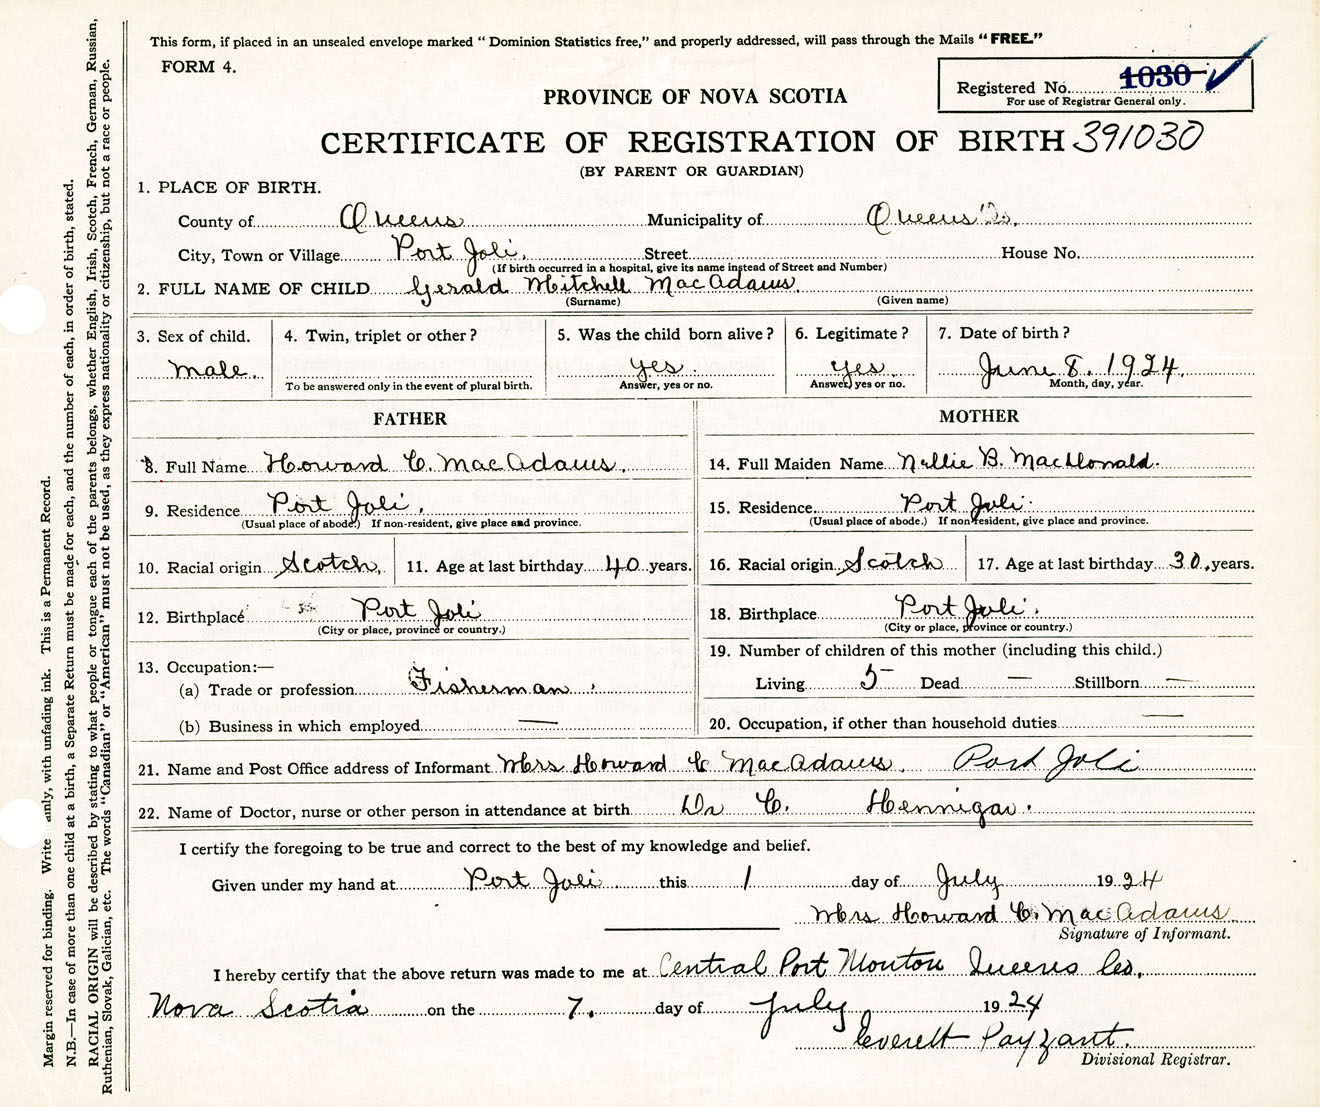 This form, if placed in an unsealed envelope marked “ Dominion Statistics free,” and properly addressed, will pass through the Mails “ FREE.”
FORM 4.
Registered No. 1030
For use of Registrar General only.
PROVINCE OF NOVA SCOTIA
CERTIFICATE OF REGISTRATION OF BIRTH 391030
(BY PARENT OR GUARDIAN)
1. PLACE OF BIRTH.
County of Queens Municipality of Queens Co.
City, Town or Village Port Joli. Street House No.
(If birth occurred in a hospital, give its name instead of Street and Number)
2. FULL NAME OF CHILD Gerald Mitchell MacAdams.
(Surname) (Given name)
3. Sex of child. 4. Twin, triplet or other ? 5. Was the child born alive ? 6. Legitimate ? 7. Date of birth ?
Male. yes. Yes. June 8. 1924.
To be answered only in the event of plural birth. Answer, yes or no. Answer, yes or no. Month, day, year.
FATHER MOTHER
8. Full Name Howard C. MacAdams. 14. Full Maiden Name Nellie B. MacDonald.
9. Residence Port Joli. 15. Residence. Port Joli.
(Usual place of abode.) If non-resident, give place and province. (Usual place of abode.) If non-resident, give place and province.
10. Racial origin Scotch. 11. Age at last birthday 40 years. 16. Racial origin Scotch 17. Age at last birthday 30. years.
12. Birthplace Port Joli 18. Birthplace Port Joli.
(City or place, province or country.) (City or place, province or country.)
13. Occupation:— 19. Number of children of this mother (including this child.)
(a) Trade or profession Fisherman. Living 5 Dead — Stillborn —
(b) Business in which employed — 20. Occupation, if other than household duties —
21. Name and Post Office address of Informant Mrs Howard C MacAdams. Port Joli
22. Name of Doctor, nurse or other person in attendance at birth Dr C. Hennigar.
I certify the foregoing to be true and correct to the best of my knowledge and belief.
Given under my hand at Port Joli this 1 day of July 1924
Mrs Howard C. MacAdams
Signature of Informant.
I hereby certify that the above return was made to me at Central Port Mouton Queens Co.
Nova Scotia on the 7. day of July 1924
Everett Payzant.
Divisional Registrar.
Margin reserved for binding. Write ainly, with unfading ink. This is a Permanent Record.
N.B.—In case of more than one child at a birth, a Separate Return must be made for each, and the number of each, in order of birth, stated.
RACIAL ORIGIN will be described by stating to what people or tongue each of the parents belongs, whether English, Irish, Scotch, French, German, Russian,
Ruthenian, Slovak, Galician, etc. The words “Canadian” or “American” must not be used, as they express nationality or citizenship, but not a race or people.